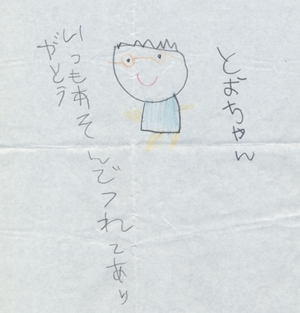 とおちゃん
いつもあそんでつれてあり
がとう